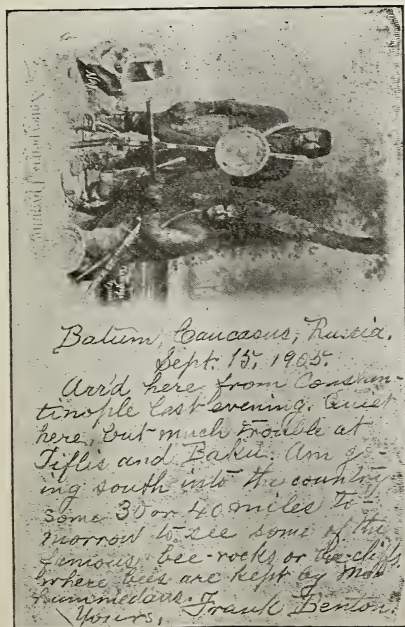 Batum, Caucasus, Russia.
Sept. 15, 1905.
Arr'd here from Constan-
tinople last evening. Quiet
here, but much trouble at
Tiflis and Baku. Am go-
ing south into the country
some 30 or 40 miles to-
morrow to see some of the
famous bee-rocks or bee-cliffs
where bees are kept by Mo-
hammedans.
Yours, Frank Benton.